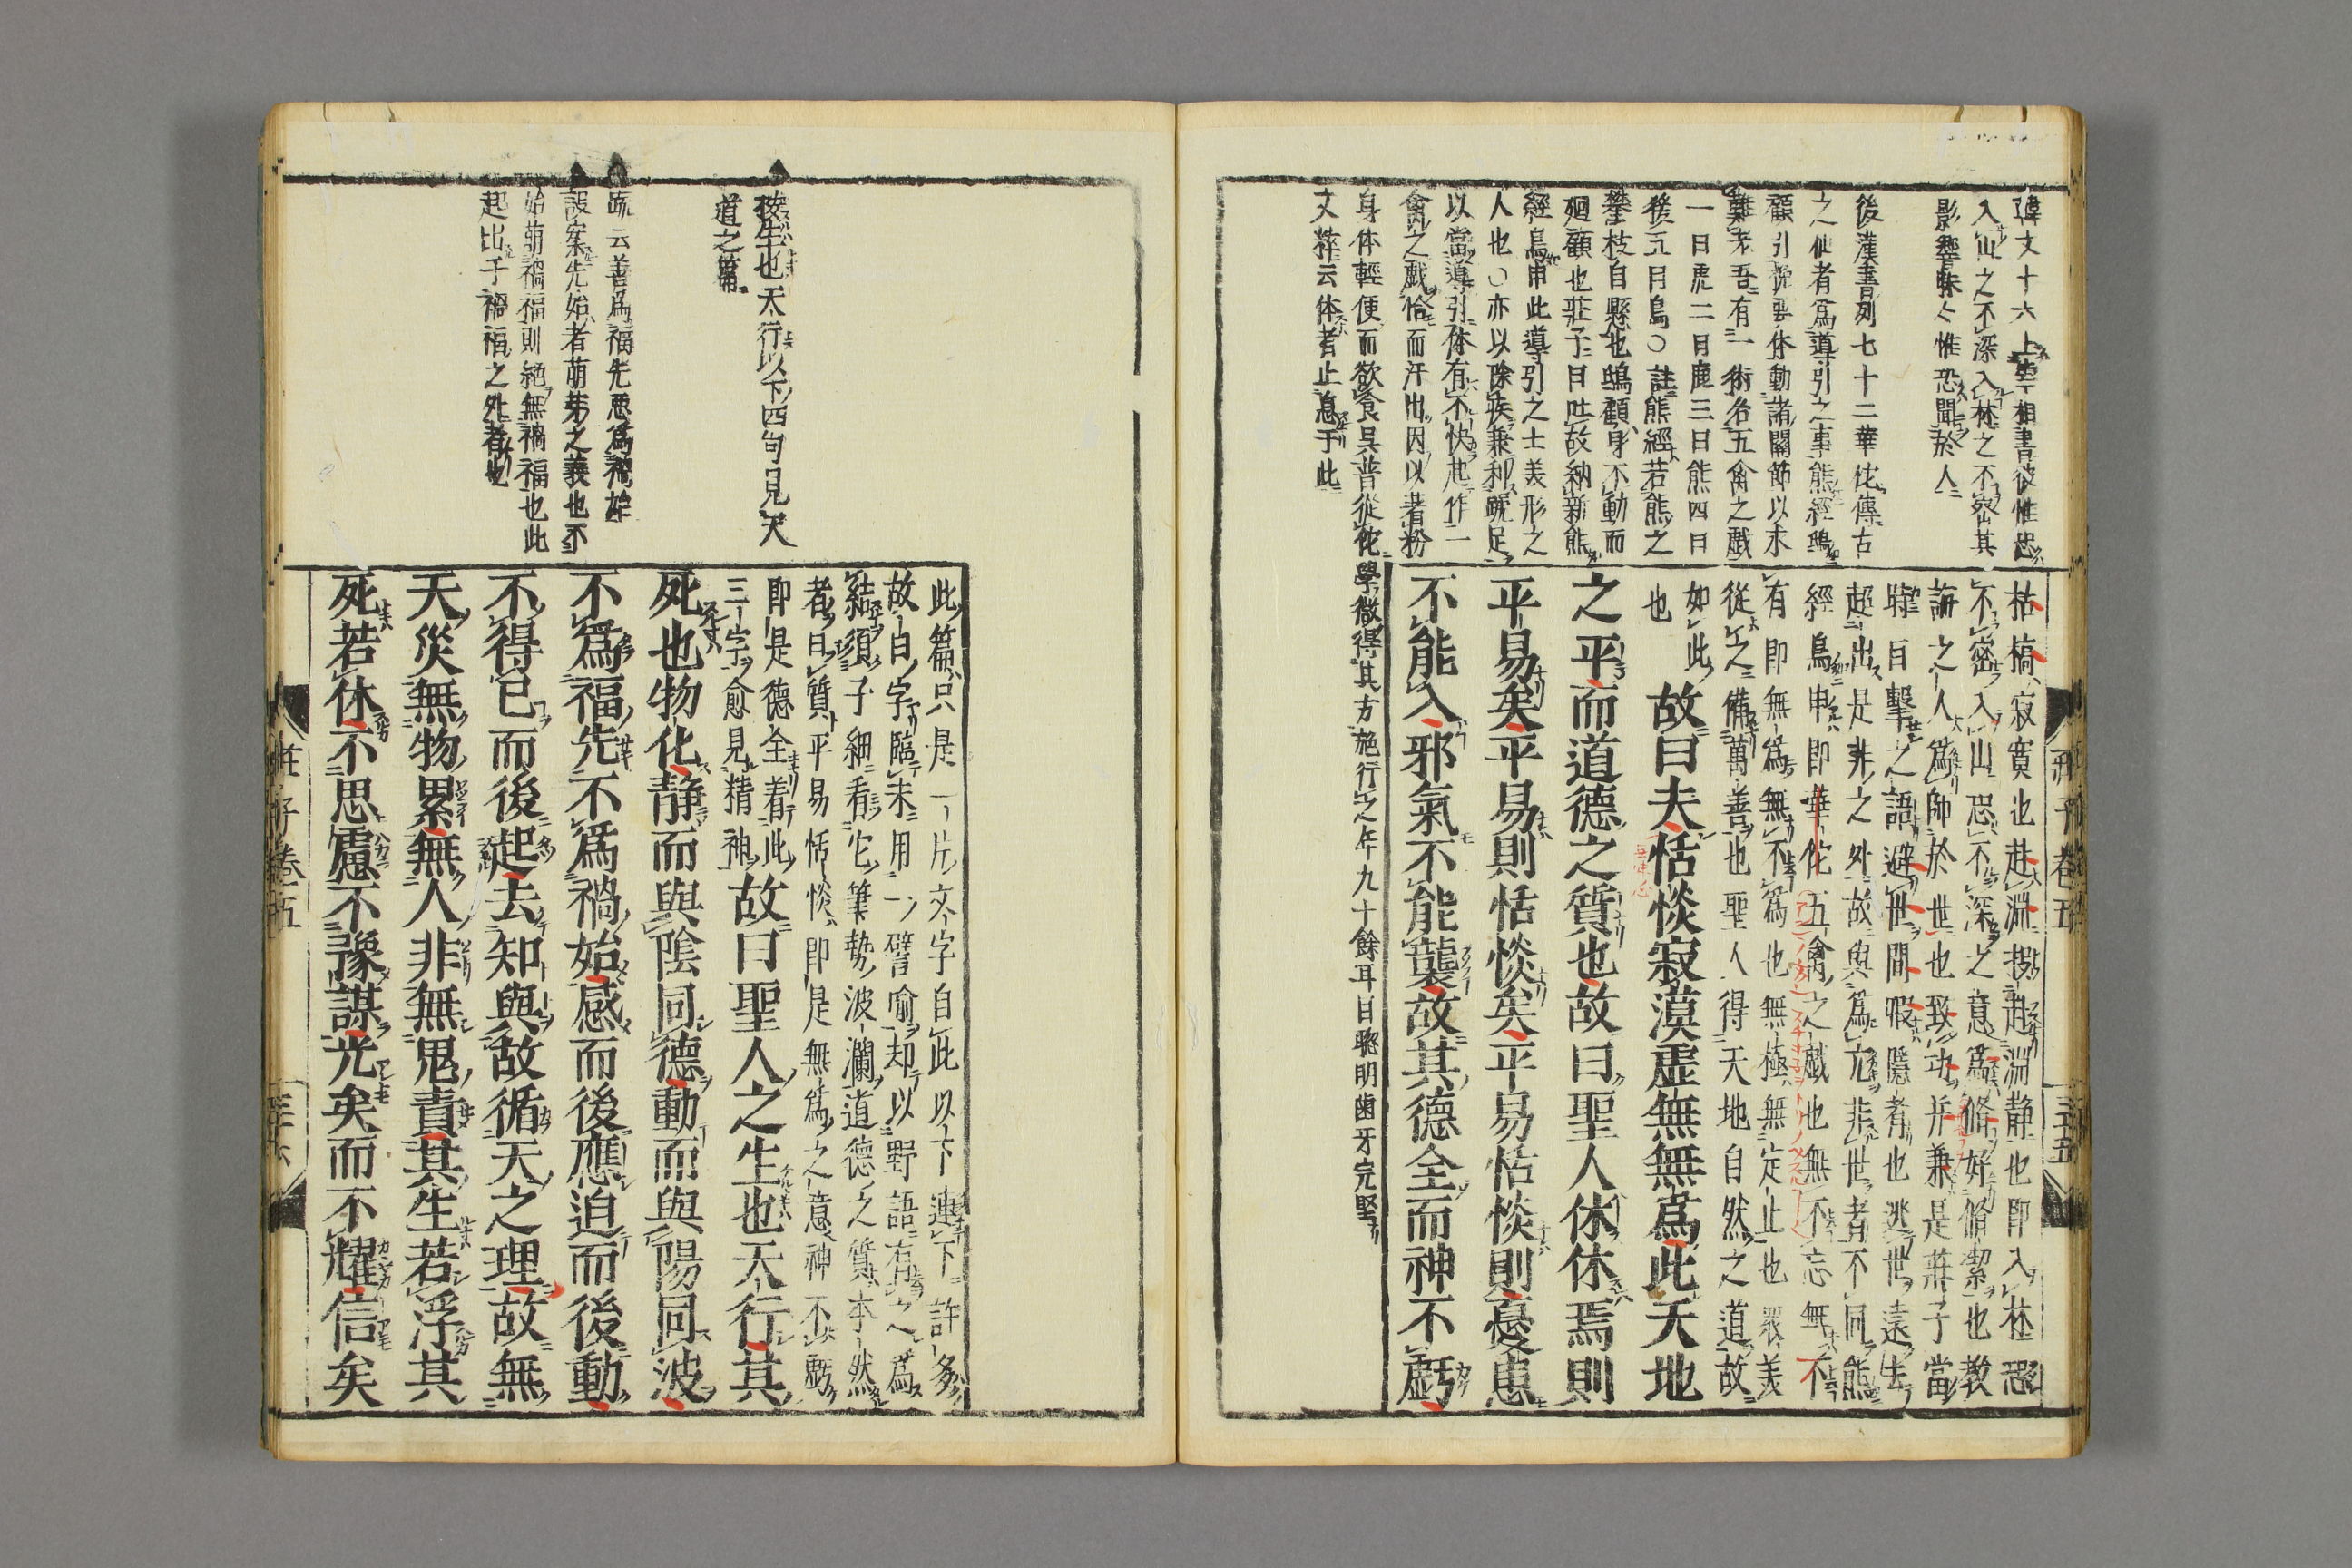 韓文十六上宰相書彼惟恐
入山之不深入林之不密其
影響昧々惟恐聞於人
後漢書列七十二華佗傳古
之仙者爲導引之事熊經鴟
顧引挽要体動諸關節以求
難老吾有一術名五禽之戲
一曰虎二曰鹿三曰熊四曰
猨五曰鳥○註熊經若熊之
攀枝自懸也鴟顧身不動而
廻顧也莊子曰吐故納新熊
經鳥申此導引之士養形之
人也○亦以除疾兼利蹏足
以當導引体有不快起作一
禽之戲恰而汗出因以著粉
身体輕便而欲食吳普從佗學微得其方施行之年九十餘耳目聰明齒牙完堅
文粹云体者止息于此
枯槁寂寞也赴淵投赴淵靜也即入林恐
不密入山恐不深之意爲脩好脩潔也教
誨之人爲師於世也致功并兼是莊子當
時目擊之語避世間暇隱者也逃世遠去
超出是非之外故與爲亢非世者不同熊
經鳥申即華佗五禽之戲也無不忘無不
有即無爲無不爲也無極無定止也衆美
從之備萬善也聖人得天地自然之道故
如此 故曰夫恬惔寂漠虛無無爲此天地
也
之平而道德之質也故曰聖人休休焉則
平易矣平易則恬惔矣平易恬惔則憂患
不能入邪氣不能襲故其德全而神不虧
莊子卷五
三十五
按生也天行以下四句見天
道之篇
疏云善爲福先惡爲禍始
設案先始者萌芽之義也不
始萌禍福則絕無禍福也此
起出于禍福之外者也
此篇只是一片文字自此以下連下許多
故曰字臨末用一譬喻却以野語有之爲
結須子細看它筆勢波瀾道德之質本然
者曰質平易恬惔即是無爲之意神不虧
即是德全着此
三字愈見精神 故曰聖人之生也天行其
死也物化靜而與陰同德動而與陽同波
不爲福先不爲禍始感而後應迫而後動
不得已而後起去知與故循天之理故無
天災無物累無人非無鬼責其生若浮其
死若休不思慮不豫謀光矣而不耀信矣
莊子卷五
三十六